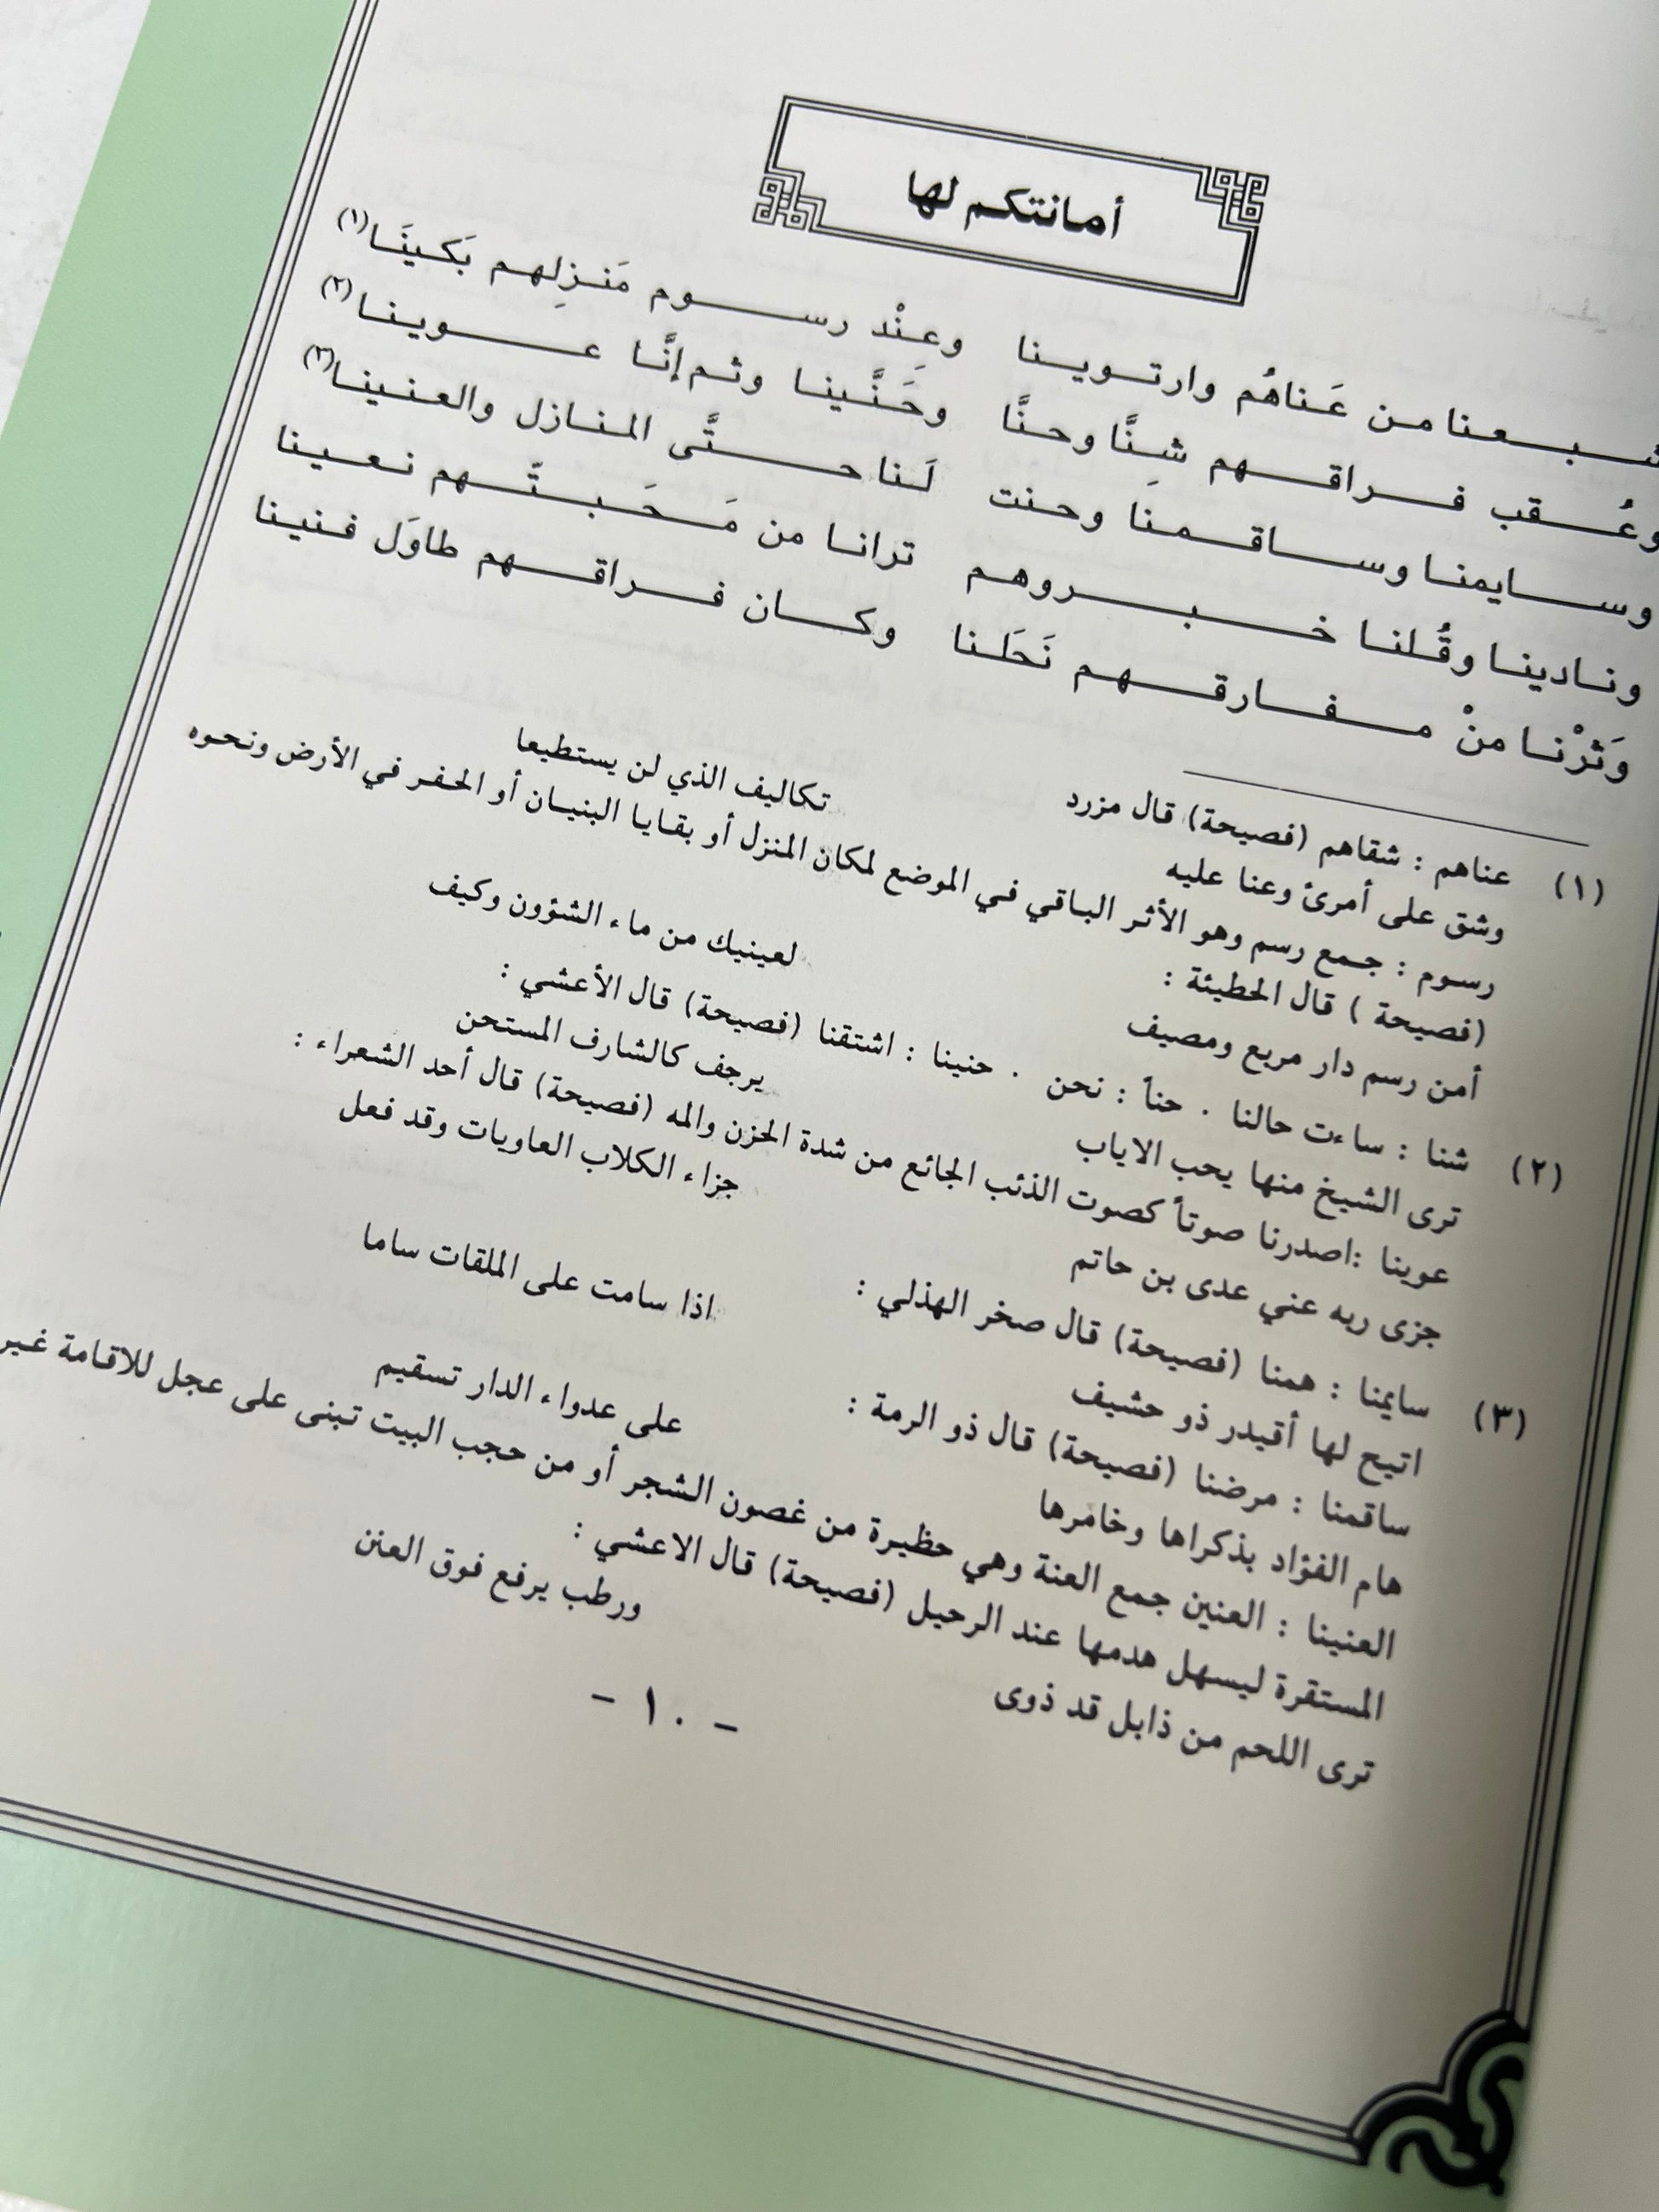 أمانتكم لها
شبعنا من عَناهُم وارتوينا وعِنْد رسوم مَنزِلهم بَكينَا(١)
وعُقب فراقهم شِنَّا وحنَّا وحَنَّينا وثم إنَّا عوينا(٢)
وسايمنا وساقمنَا وحنت لَنا حتَّى المنازل والعنينا(٣)
ونادينا وقُلنا خبروهم ترانا من مَحَبتّهم نعينا
وَثرْنا منْ مفارقهم نَحَلنا وكان فراقهم طاوَل فنينا
(١) عناهم : شقاهم (فصيحة) قال مزرد
وشق على أمرئ وعنا عليه تكاليف الذي لن يستطيعا
رسوم : جمع رسم وهو الأثر الباقي في الموضع لمكان المنزل أو بقايا البنيان أو الحفر في الأرض ونحوه
(فصيحة ) قال الحطيئة :
أمن رسم دار مربع ومصيف لعينيك من ماء الشؤون وكيف
(٢) شنا : ساءت حالنا . حناً : نحن . حنينا : اشتقنا (فصيحة) قال الأعشي :
ترى الشيخ منها يحب الاياب يرجف كالشارف المستحن
عوينا :اصدرنا صوتاً كصوت الذئب الجائع من شدة الحزن والمه (فصيحة) قال أحد الشعراء :
جزى ربه عني عدى بن حاتم جزاء الكلاب العاويات وقد فعل
(٣) سايمنا : همنا (فصيحة) قال صخر الهذلي :
اتيح لها أقيدر ذو حشيف اذا سامت على الملقات ساما
ساقمنا : مرضنا (فصيحة) قال ذو الرمة :
هام الفؤاد بذكراها وخامرها على عدواء الدار تسقيم
العنينا : العنين جمع العنة وهي حظيرة من غصون الشجر أو من حجب البيت تبنى على عجل للاقامة غير
المستقرة ليسهل هدمها عند الرحيل (فصيحة) قال الاعشي :
ترى اللحم من ذابل قد ذوى ورطب يرفع فوق العنن
- ١٠ -